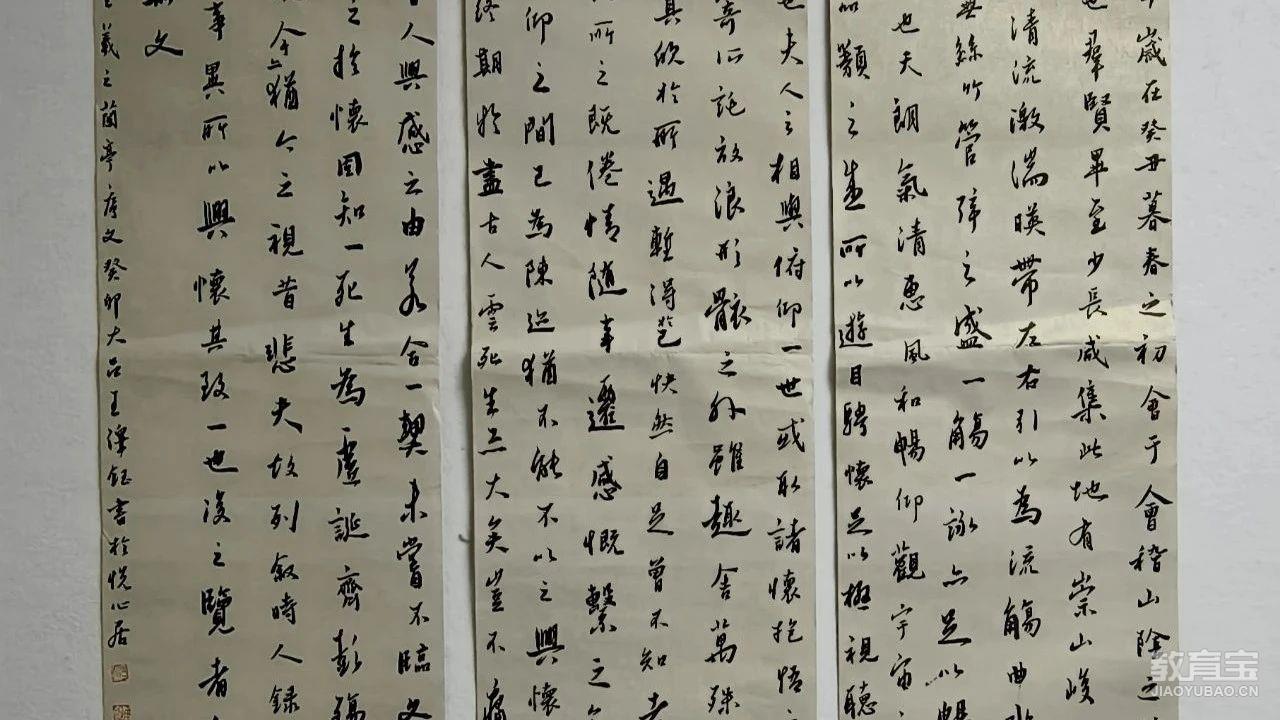 歲在癸丑暮春之初會于會稽山陰之
也羣賢畢至少長咸集此地有崇山峻
清流激湍暎帶左右引以為流觴曲水
無絲竹管弦之盛一觴一詠亦足以暢
也天朗氣清惠風和暢仰觀宇宙
品類之盛所以遊目騁懷足以極視聽
也夫人之相與俯仰一世或取諸懷抱悟
寄所託放浪形骸之外雖趣舍萬殊
其欣於所遇暫得於己快然自足曾不知老
所之既倦情隨事遷感慨繫之
仰之間已為陳迹猶不能不以之興懷
終期於盡古人雲死生亦大矣豈不痛
人興感之由若合一契未嘗不臨文
之於懷固知一死生為虛誕齊彭殤
今亦猶今之視昔悲夫故列敘時人錄
事異所以興懷其致一也後之覽者
斯文
王羲之蘭亭序文癸卯大呂王澤鈺書於悅心居
教育宝
JIAOYUBAO.CN